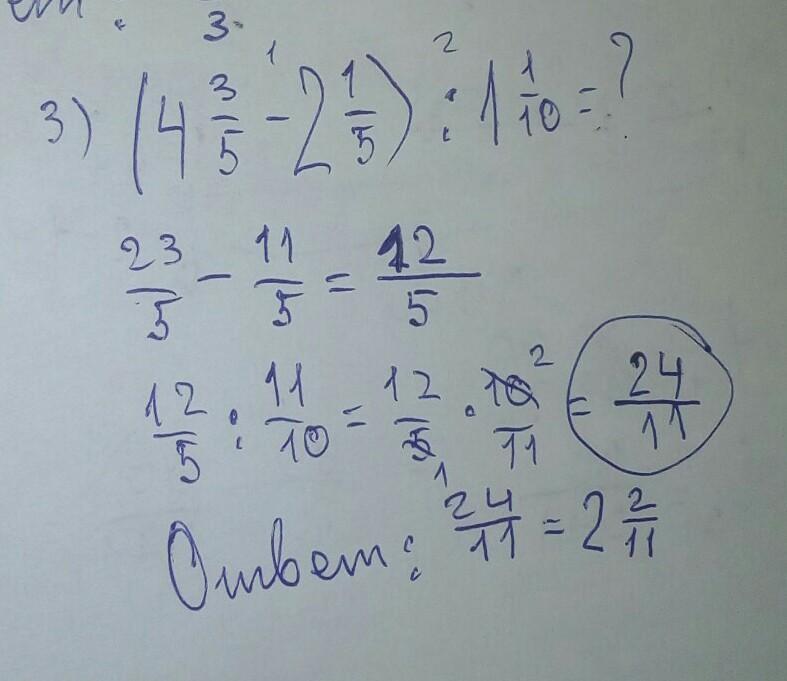 3.
3) (4 3/5 - 2 1/5) : 1 1/10 = ?
1 2
23/5 - 11/5 = 12/5
12/5 : 11/10 = 12/5 · 10/11 = 24/11
2
1
Ответ: 24/11 = 2 2/11